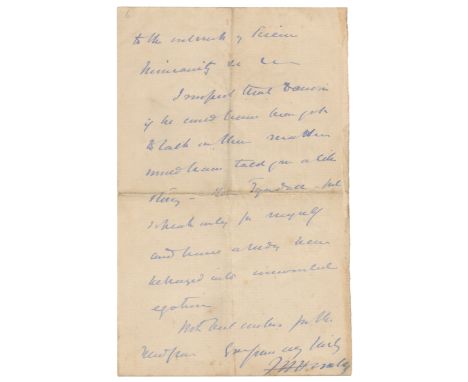 6
to the interests of Science
Humanity &c &c —
I suspect that Darwin
if he could have been got
to talk on these matters
would have told you a like
story — Also Tyndall — but
I speak only for myself
and have already been
betrayed into
egotism
With best wishes for the
New Year Ever yours very truly
T H Huxley